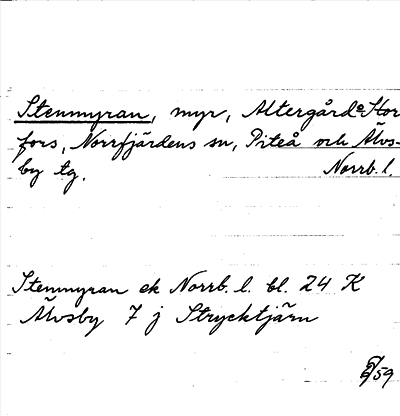 Stenmyran, myr, Altergård o. Stor
fors, Norrfjärdens sn, Piteå och Älvs-
by tg. Norrb. l.
Stenmyran ek Norrb. l. bl. 24 K
Älvsby 7 j Strycktjärn
59